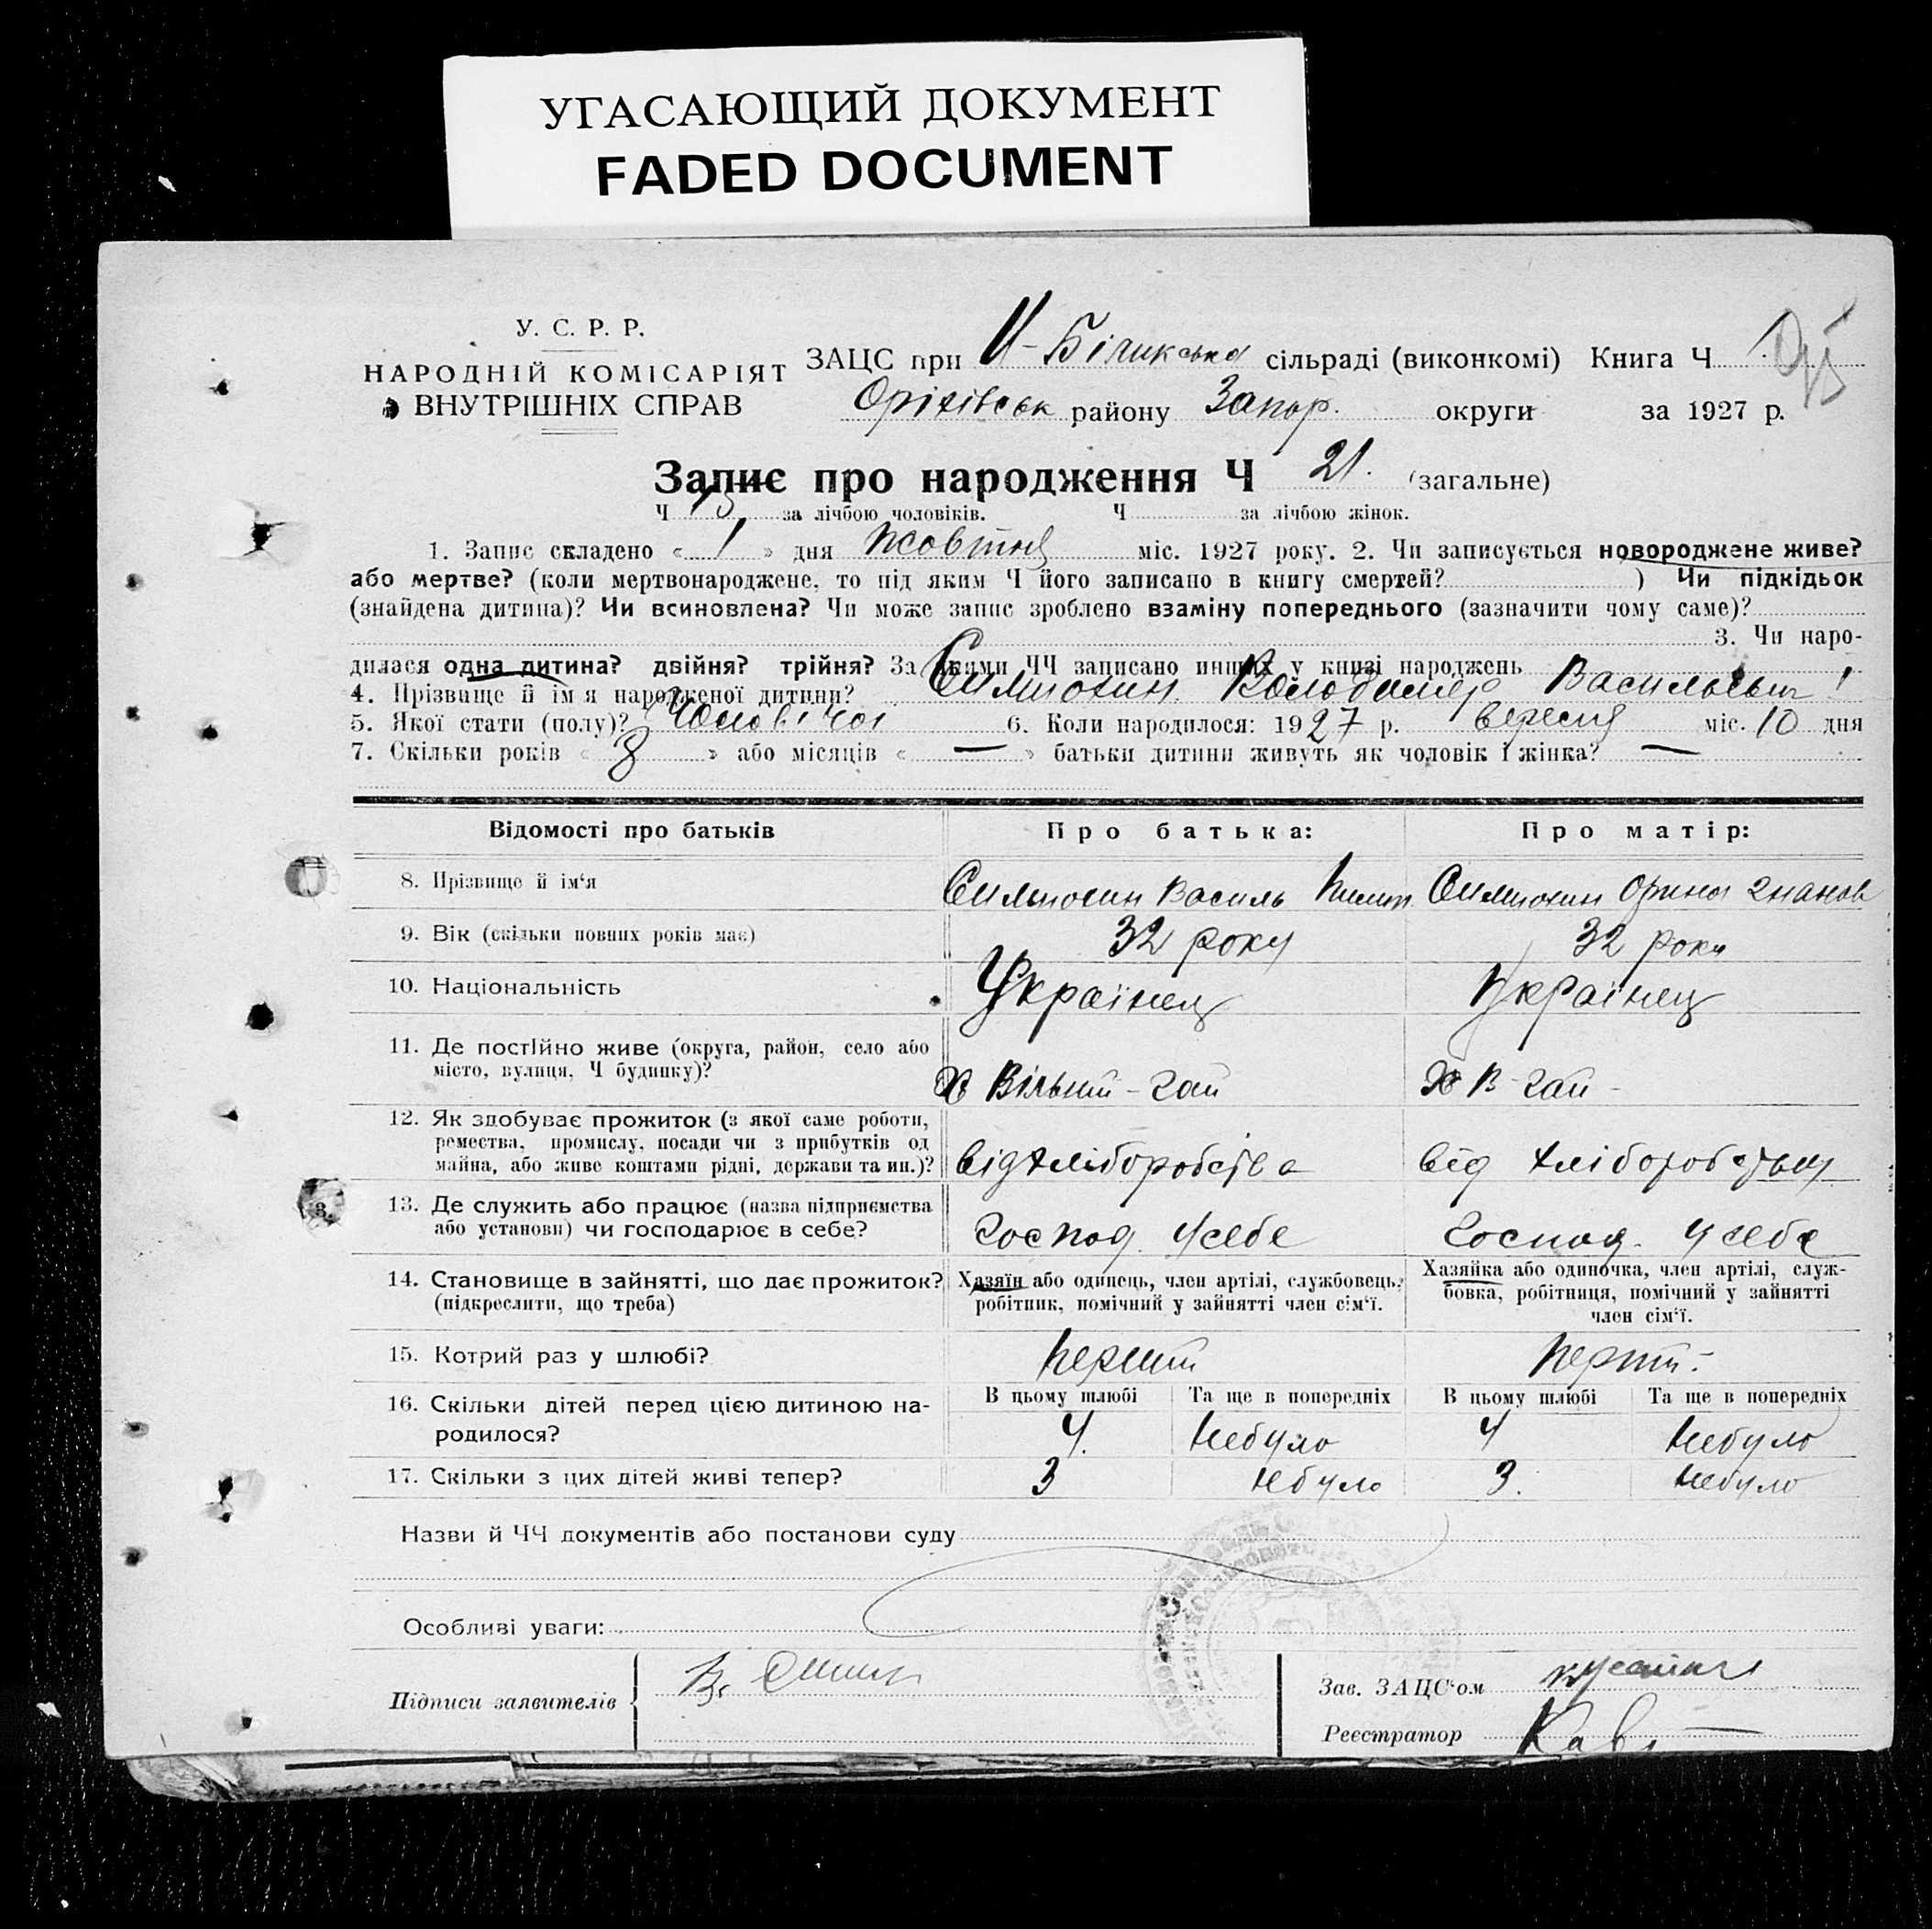 УГАСАЮЩИЙ ДОКУМЕНТ
FADED DOCUMENT
У. С. Р. Р.
НАРОДНІЙ КОМІСАРІЯТ
ВНУТРІШНІХ СПРАВ
ЗАЦС при сільраді (виконкомі) Книга Ч 1
Оріхівськ району Запор. округи за 1927 р.
Запис про народження Ч 21. (загальне)
Ч 13 за лічбою чоловіків. Ч за лічбою жінок.
1. Запис складено « 1 » дня жовтня міс. 1927 року. 2. Чи записується новороджене живе?
або мертве? (коли мертвонароджене, то під яким Ч його записано в книгу смертей? ) Чи підкідьок
(знайдена дитина)? Чи всиновлена? Чи може запис зроблено взаміну попереднього (зазначити чому саме)?
3. Чи наро-
дилася одна дитина? двійня? трійня? За якими ЧЧ записано инших у книзі народжень
4. Прізвище й ім'я народженої дитини? Володимер Васильевич
5. Якої стати (полу)? Чоловічої 6. Коли народилося: 1927 р. вересня міс. 10 дня
7. Скільки років « 8 » або місяців « — » батьки дитини живуть як чоловік і жінка? —
Відомості про батьків Про батька: Про матір:
8. Прізвище й ім'я Василь Орина
9. Вік (скільки повних років має) 32 роки 32 роки
10. Національність Українец Українец
11. Де постІйно живе (округа, район, село або
місто, вулиця, Ч будинку)? Х Вільний-гай Х В-гай
12. Як здобуває прожиток (з якої саме роботи,
ремества, промислу, посади чи з прибутків од
майна, або живе коштами рідні, держави та ин.)? від хліборобства від хліборобства
13. Де служить або працює (назва підприємства
або установи) чи господарює в себе? господ. у себе господ. у себе
14. Становище в зайнятті, що дає прожиток?
(підкреслити, що треба)
Хазяїн або одинець, член артілі, службовець,
робітник, помічний у зайнятті член сім'ї.
Хазяйка або одиночка, член артілі, служ-
бовка, робітниця, помічний у зайнятті
член сім'ї.
15. Котрий раз у шлюбі? перший перший
16. Скільки дітей перед цією дитиною на-
родилося?
В цьому шлюбі Та ще в попередніх В цьому шлюбі Та ще в попередніх
4. небуло 4 небуло
17. Скільки з цих дітей живі тепер? 3 небуло 3. небуло
Назви й ЧЧ документів або постанови суду
Особливі уваги:
Підписи заявителів
Зав. ЗАЦС'ом
Реєстратор